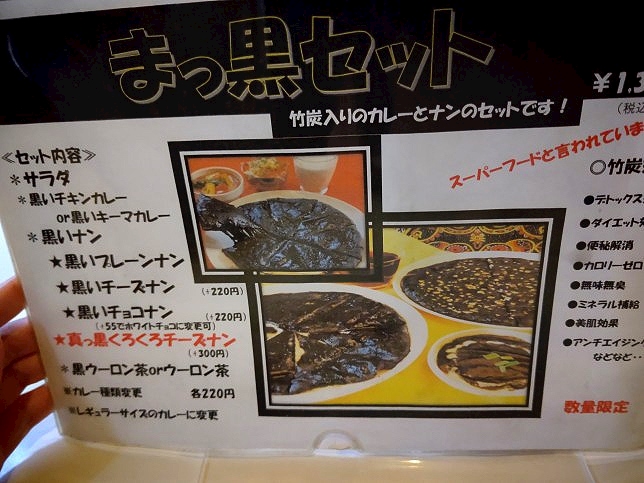 まっ黒セット
¥1,3
(税込
竹炭入りのカレーとナンのセットです！
スーパーフードと言われていま
≪セット内容≫
＊サラダ
＊黒いチキンカレー
or黒いキーマカレー
＊黒いナン
★黒いプレーンナン
★黒いチーズナン (+220円)
★黒いチョコナン (+220円)
(+55でホワイトチョコに変更可)
★真っ黒くろくろチーズナン
(+300円)
＊黒ウーロン茶orウーロン茶
※カレー種類変更 各220円
※レギュラーサイズのカレーに変更
◎竹炭
●デトックス
●ダイエット
●便秘解消
●カロリーゼロ
●無味無臭
●ミネラル補給
●美肌効果
●アンチエイジング
などなど・・
数量限定